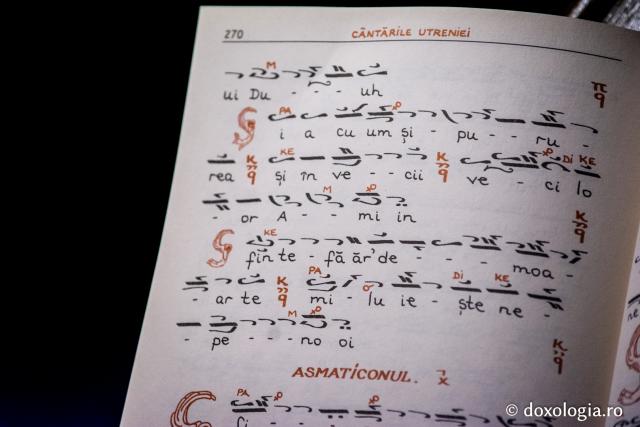 270 CÂNTĂRILE UTRENIEI
M
ui Du - - - uh
PA
i a cu um și - pu - - ru -
KE DI KE
rea și în ve - - cii ve - ci lo
M
- or A - - mi in
KE
fin te - fă ăr' de - - - - moa -
PA DI KE
- ar te mi - lu ie - ște ne -
M
- pe - - - no oi
ASMATICONUL.
PA
© doxologia.ro